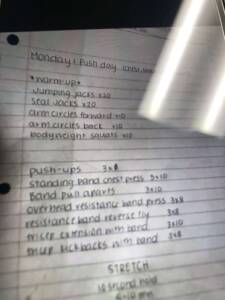 Monday: Push day
*warm-up*
Jumping jacks x20
seal Jacks x20
arm circles forward x10
arm circles back x10
bodyweight squats x10
push-ups 3x8
standing band chest press 3x10
Band pull aparts 3x10
overhead resistance band press 3x8
resistance band reverse fly 3x8
tricep extension with band 3x10
kickbacks with band 3x8
STRETCH
10 second hold